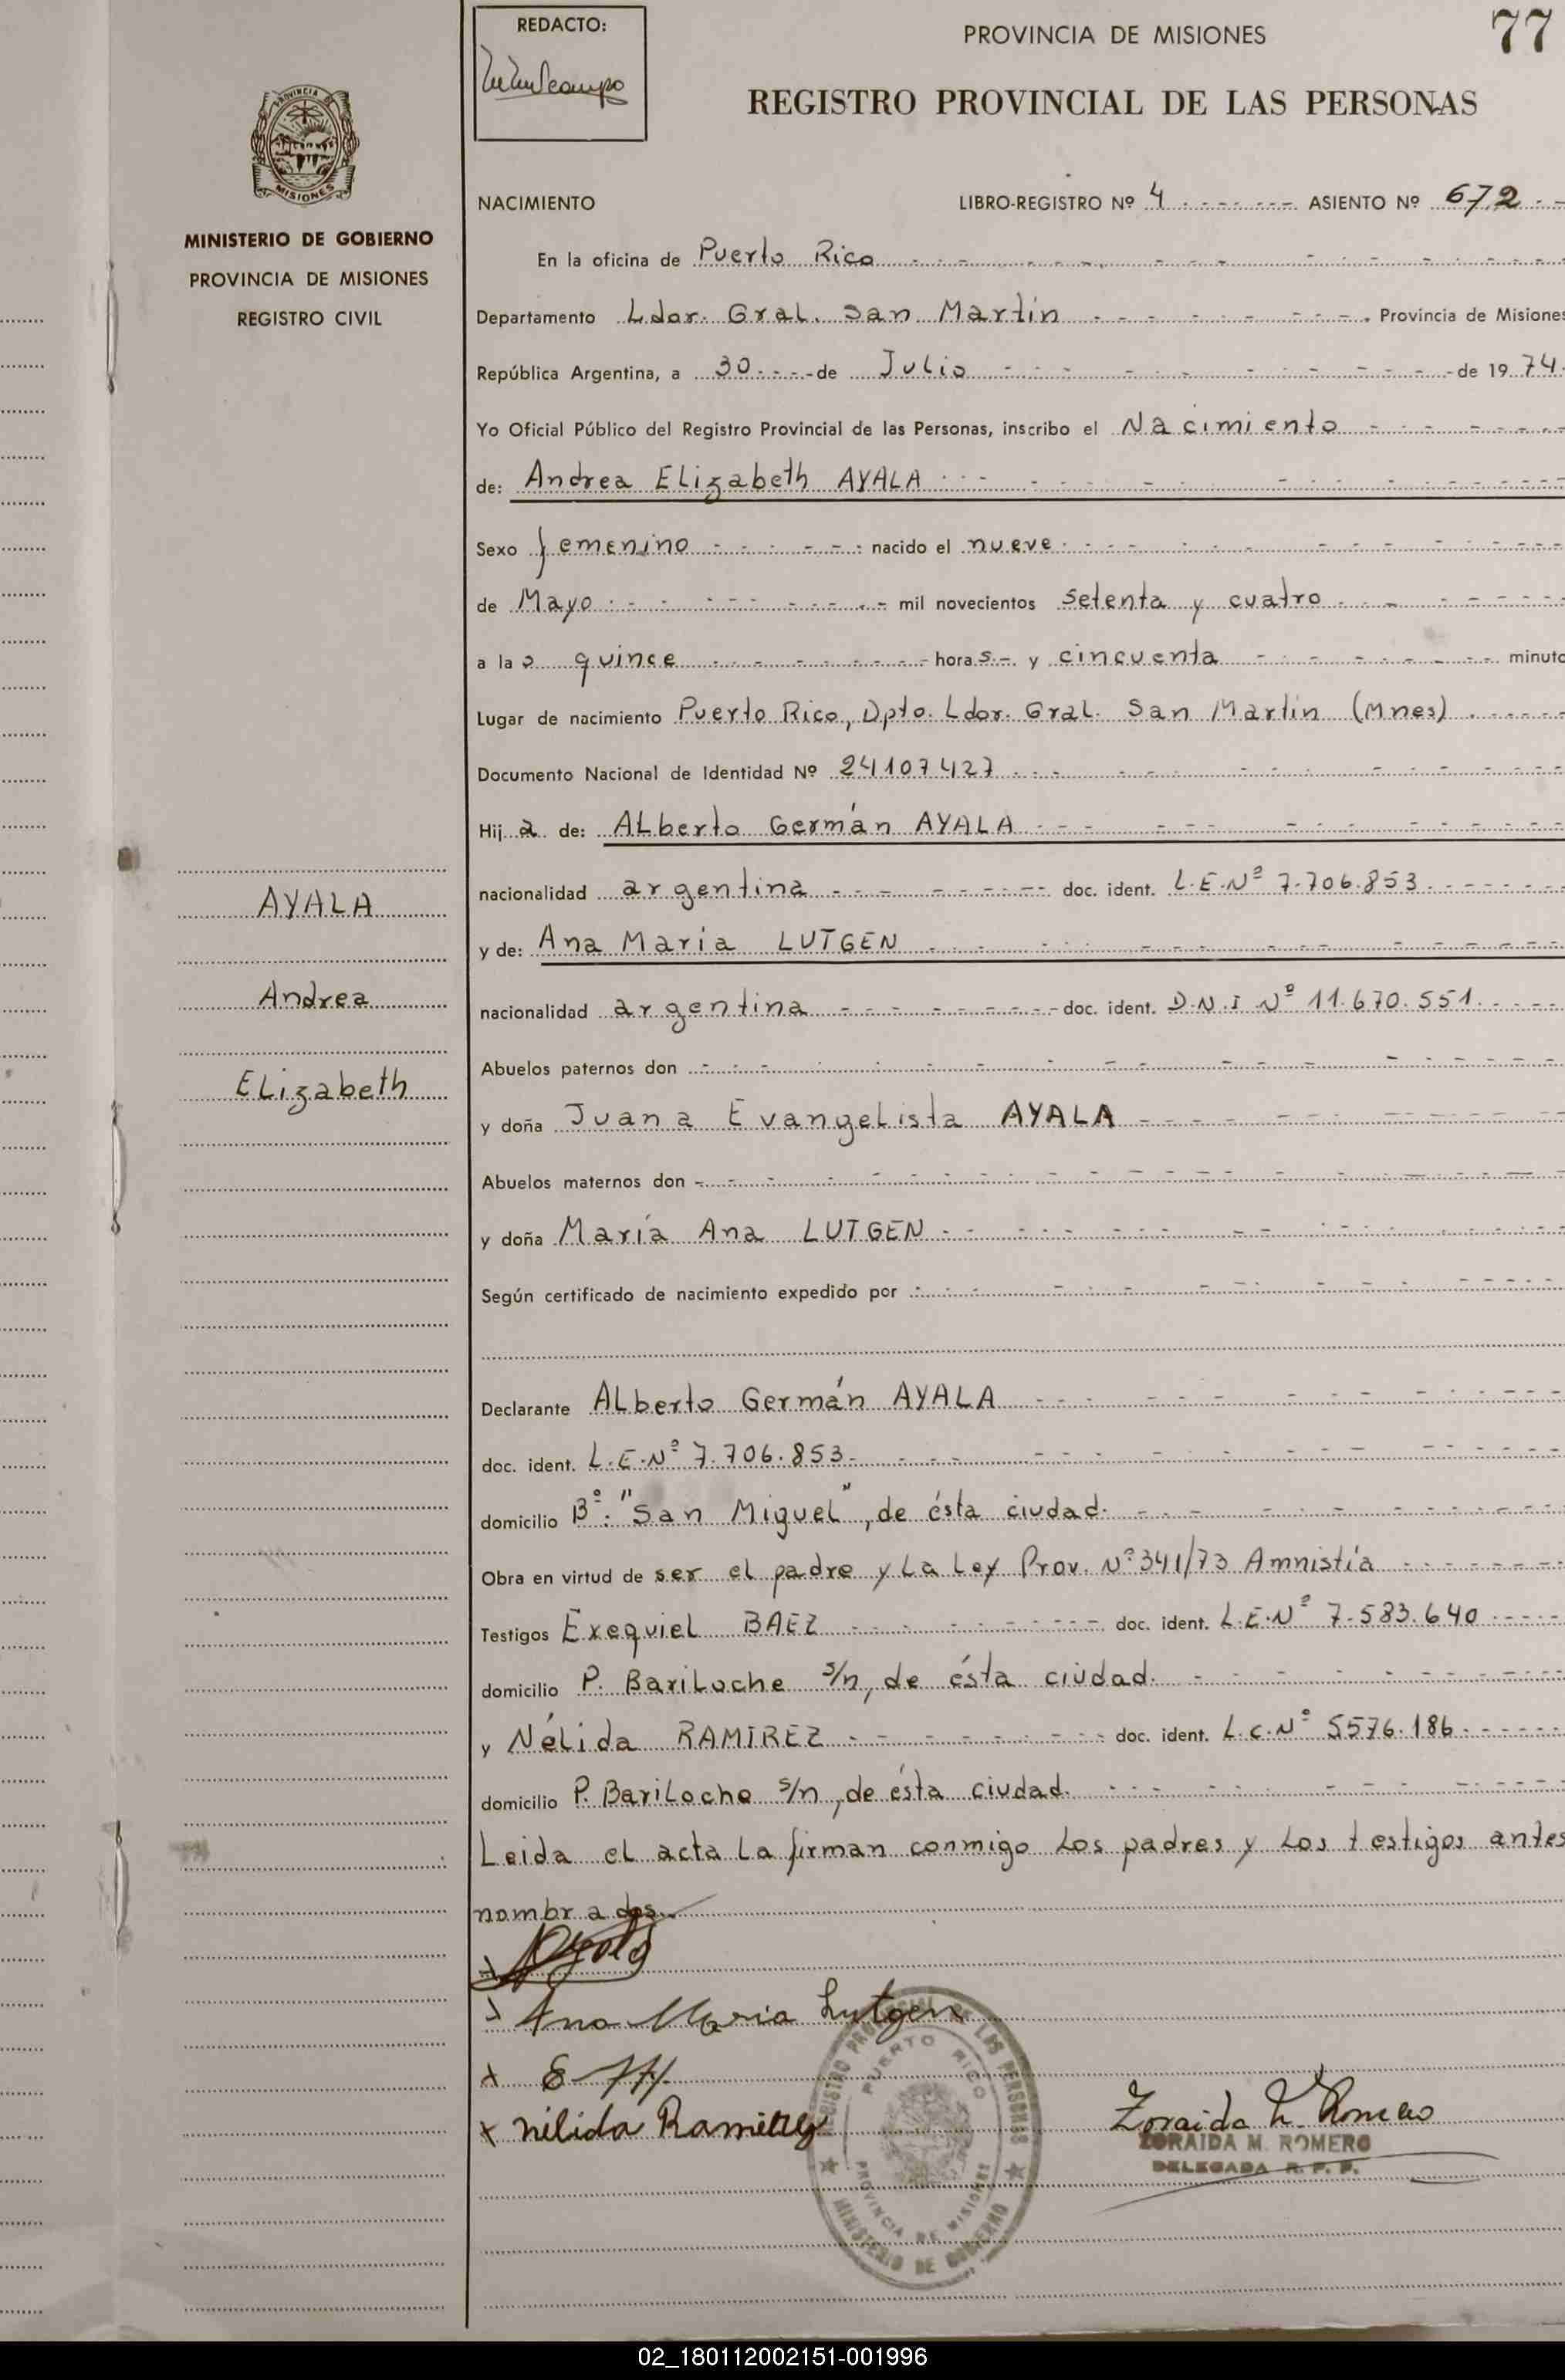 REDACTO:
PROVINCIA DE MISIONES
77
REGISTRO PROVINCIAL DE LAS PERSONAS
PROVINCIA DE
MISIONES
MINISTERIO DE GOBIERNO
PROVINCIA DE MISIONES
REGISTRO CIVIL
NACIMIENTO LIBRO-REGISTRO Nº 4 ASIENTO Nº 672
En la oficina de Puerto Rico
Departamento Ldor. Gral. San Martin Provincia de Misiones
República Argentina, a 30 de Julio de 1974
Yo Oficial Público del Registro Provincial de las Personas, inscribo el Nacimiento
de: Andrea Elizabeth AYALA
Sexo femenino nacido el nueve
de Mayo mil novecientos setenta y cuatro
a las quince horas y cincuenta minuto
Lugar de nacimiento Puerto Rico, Dpto. Ldor. Gral. San Martin (Mnes)
Documento Nacional de Identidad Nº 24107427
Hija de: Alberto Germán AYALA
nacionalidad argentina doc. ident. L.E.Nº 7.706.853
y de: Ana Maria LUTGEN
nacionalidad argentina doc. ident. D.N.I Nº 11.670.551
Abuelos paternos don
y doña Juana Evangelista AYALA
Abuelos maternos don
y doña María Ana LUTGEN
Según certificado de nacimiento expedido por
Declarante Alberto Germán AYALA
doc. ident. L.E.Nº 7.706.853
domicilio Bº: "San Miguel", de ésta ciudad.
Obra en virtud de ser el padre y la Ley Prov. Nº 341/73 Amnistía
Testigos Exequiel BAEZ doc. ident. L.E.Nº 7.583.640
domicilio P. Bariloche s/n, de ésta ciudad.
y Nélida RAMIREZ doc. ident. L.C.Nº 5576.186
domicilio P. Bariloche s/n, de ésta ciudad.
Leida el acta la firman conmigo los padres y los testigos antes
nombrados.
AYALA
Andrea
Elizabeth
Ayala
Ana Maria Lutgen
Nélida Ramirez
REGISTRO PROVINCIAL DE LAS PERSONAS
PUERTO RICO
PROVINCIA DE MISIONES
MINISTERIO DE GOBIERNO
Zoraida M. Romero
ZORAIDA M. ROMERO
DELEGADA R. P. P.
02_180112002151-001996